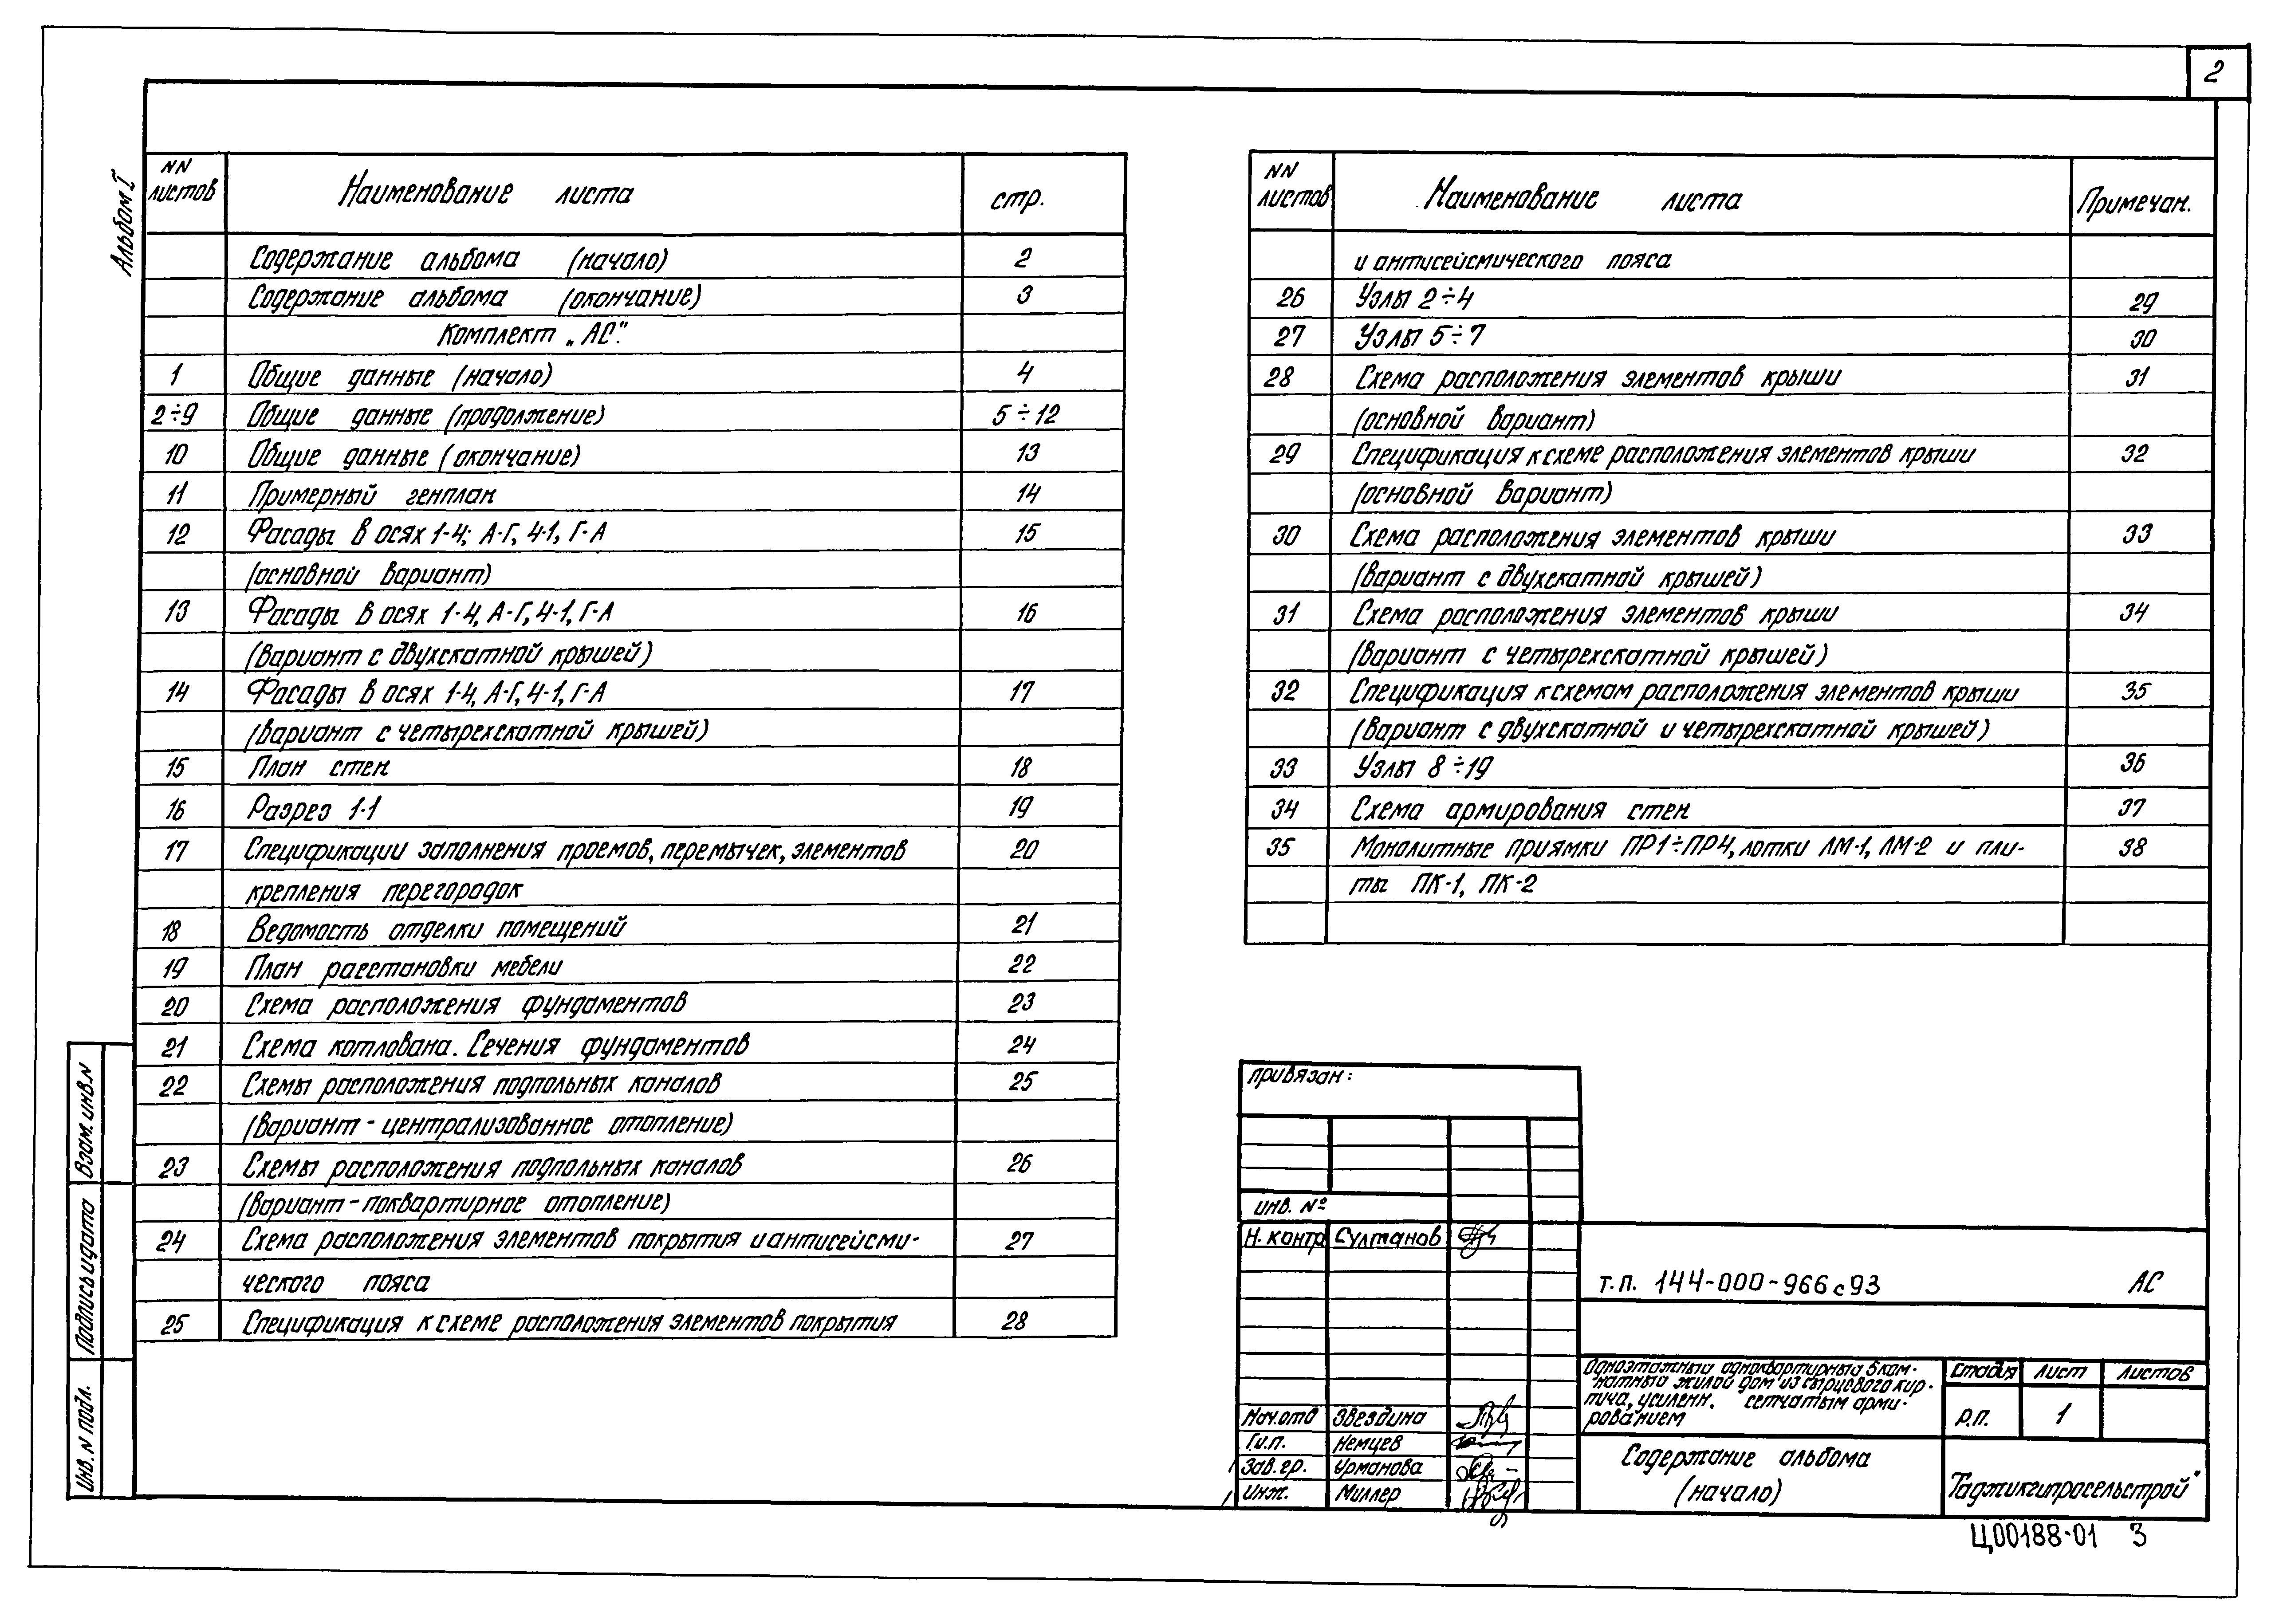 2
Альбом I
NN листов Наименование листа стр.
Содержание альбома (начало) 2
Содержание альбома (окончание) 3
Комплект „АС".
1 Общие данные (начало) 4
2÷9 Общие данные (продолжение) 5÷12
10 Общие данные (окончание) 13
11 Примерный генплан 14
12 Фасады в осях 1-4; А-Г, 4-1, Г-А 15
(основной вариант)
13 Фасады в осях 1-4, А-Г, 4-1, Г-А 16
(вариант с двухскатной крышей)
14 Фасады в осях 1-4, А-Г, 4-1, Г-А 17
(вариант с четырехскатной крышей)
15 План стен 18
16 Разрез 1-1 19
17 Спецификации заполнения проемов, перемычек, элементов 20
крепления перегородок
18 Ведомость отделки помещений 21
19 План расстановки мебели 22
20 Схема расположения фундаментов 23
21 Схема котлована. Сечения фундаментов 24
22 Схемы расположения подпольных каналов 25
(вариант - централизованное отопление)
23 Схемы расположения подпольных каналов 26
(вариант - поквартирное отопление)
24 Схема расположения элементов покрытия и антисейсми- 27
ческого пояса
25 Спецификация к схеме расположения элементов покрытия 28
NN листов Наименование листа Примечан.
и антисейсмического пояса
26 Узлы 2÷4 29
27 Узлы 5÷7 30
28 Схема расположения элементов крыши 31
(основной вариант)
29 Спецификация к схеме расположения элементов крыши 32
(основной вариант)
30 Схема расположения элементов крыши 33
(вариант с двухскатной крышей)
31 Схема расположения элементов крыши 34
(вариант с четырехскатной крышей)
32 Спецификация к схемам расположения элементов крыши 35
(вариант с двухскатной и четырехскатной крышей)
33 Узлы 8÷19 36
34 Схема армирования стен 37
35 Монолитные приямки ПР1÷ПР4, лотки ЛМ-1, ЛМ-2 и пли- 38
ты ПК-1, ПК-2
Взам. инв.N
Подпись и дата
Инв. N подл.
привязан:
инв. №
Н. контр Султанов
т.п. 144-000-966с93 АС
Одноэтажный одноквартирный 5 ком-
натный жилой дом из сырцового кир-
пича, усиленн. сетчатым арми-
рованием
Стадия Лист Листов
Р.П. 1
Нач.отд Звездина
Г.и.п. Немцев
Зав.гр. Урманова
Инж. Миллер
Содержание альбома
(начало)
Таджикгипросельстрой"
Ц00188-01 3